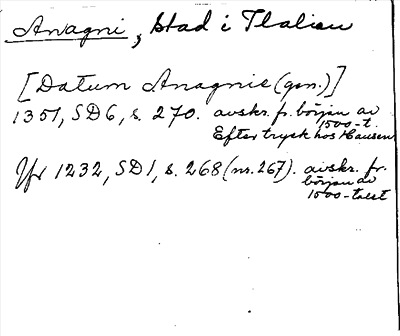 Anagni, stad i Italien
[Datum Anagnie (gen.)]
1351, SD6, s. 270. avskr. fr. början av
1500-t.
Efter tryck hos Hausen
Jfr 1232, SD1, s. 268 (nr. 267). avskr. fr.
början av
1500-talet